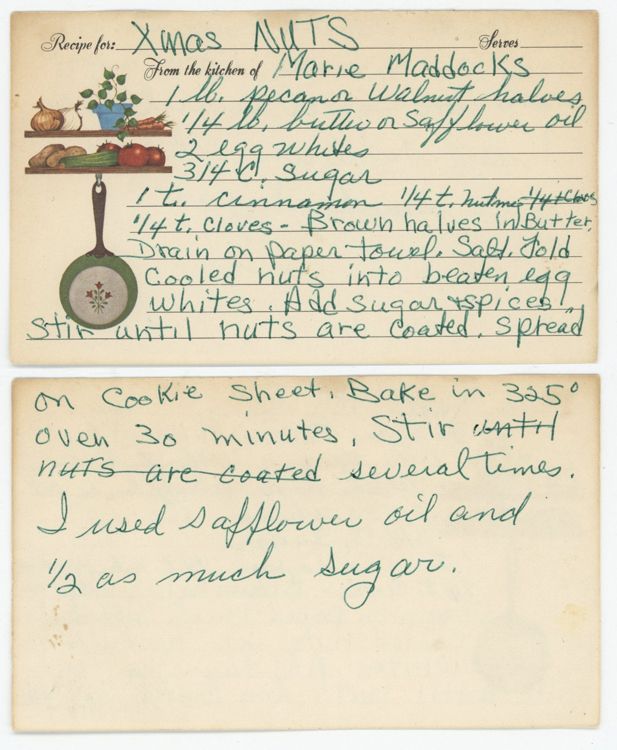 Recipe for: Xmas NUTS Serves
From the kitchen of Marie Maddocks
1 lb. pecan or Walnut halves
1/4 lb. butter or Safflower oil
2 egg whites
3/4 C. Sugar
1 t. cinnamon 1/4 t. nutmeg 1/4 t Cloves
1/4 t. Cloves - Brown halves in Butter.
Drain on paper towel. Salt. Fold
Cooled nuts into beaten egg
whites. Add Sugar + spices
Stir until nuts are coated. Spread
on Cookie Sheet. Bake in 325°
oven 30 minutes. Stir until
nuts are coated several times.
I used safflower oil and
1/2 as much sugar.